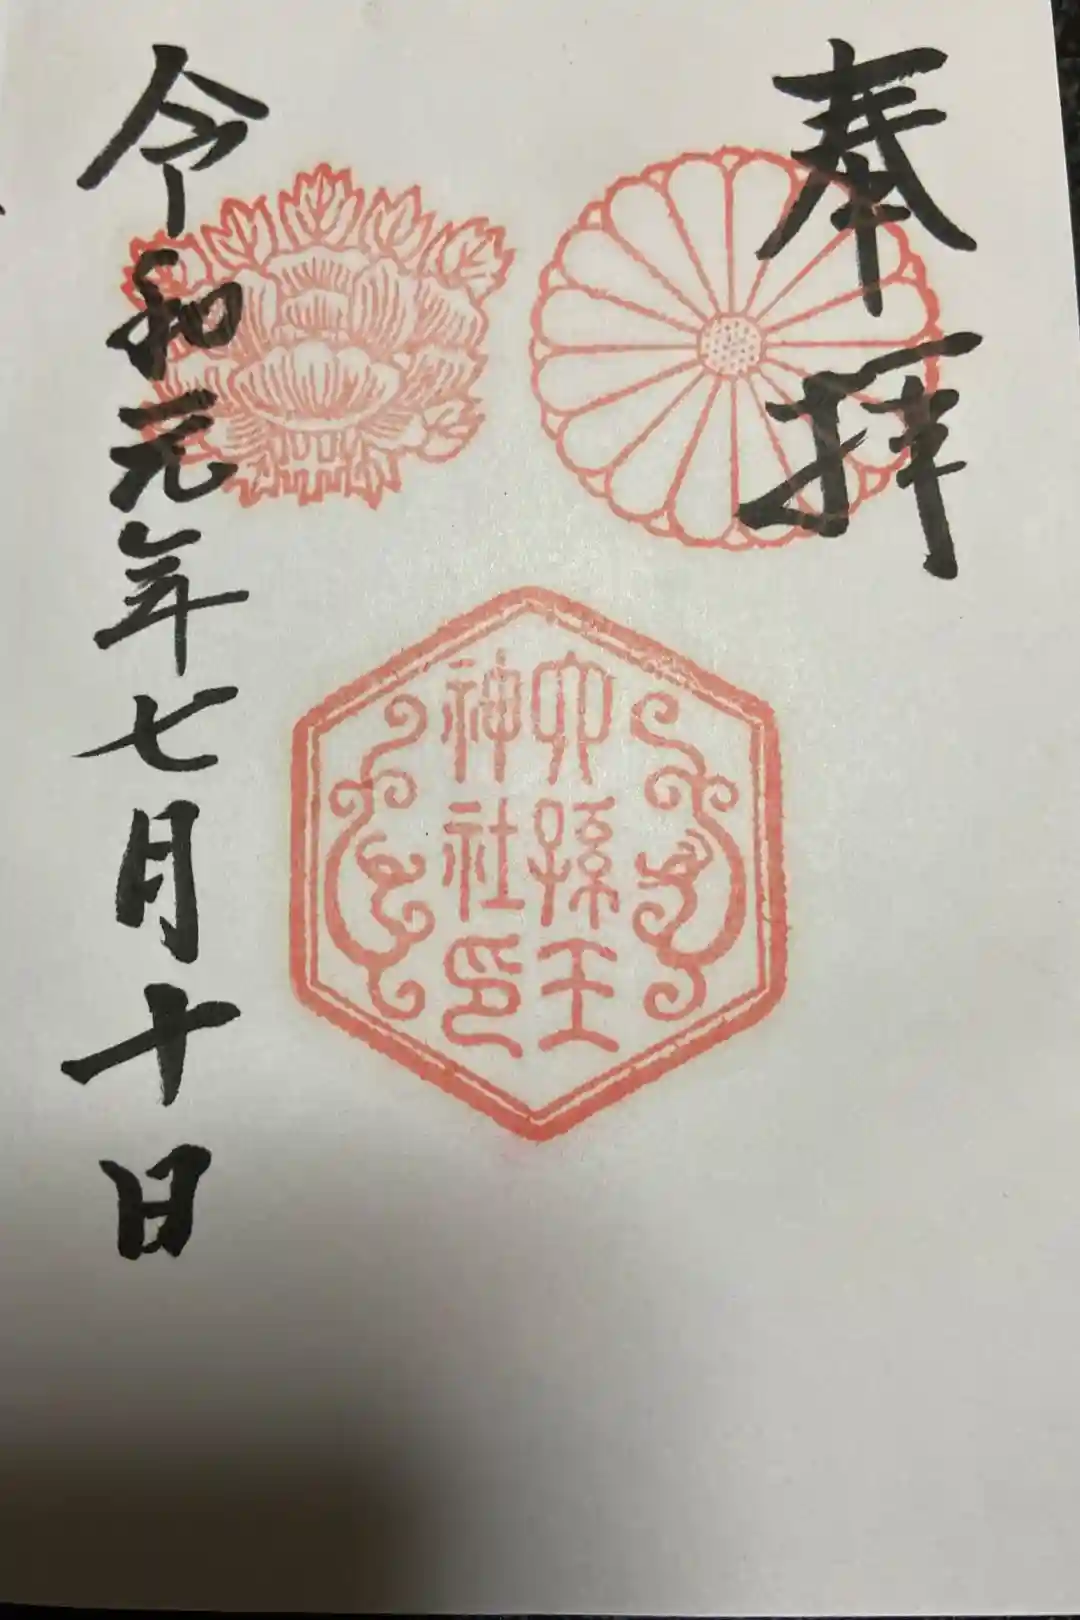 奉拝
六孫王
神社印
令和元年七月十日